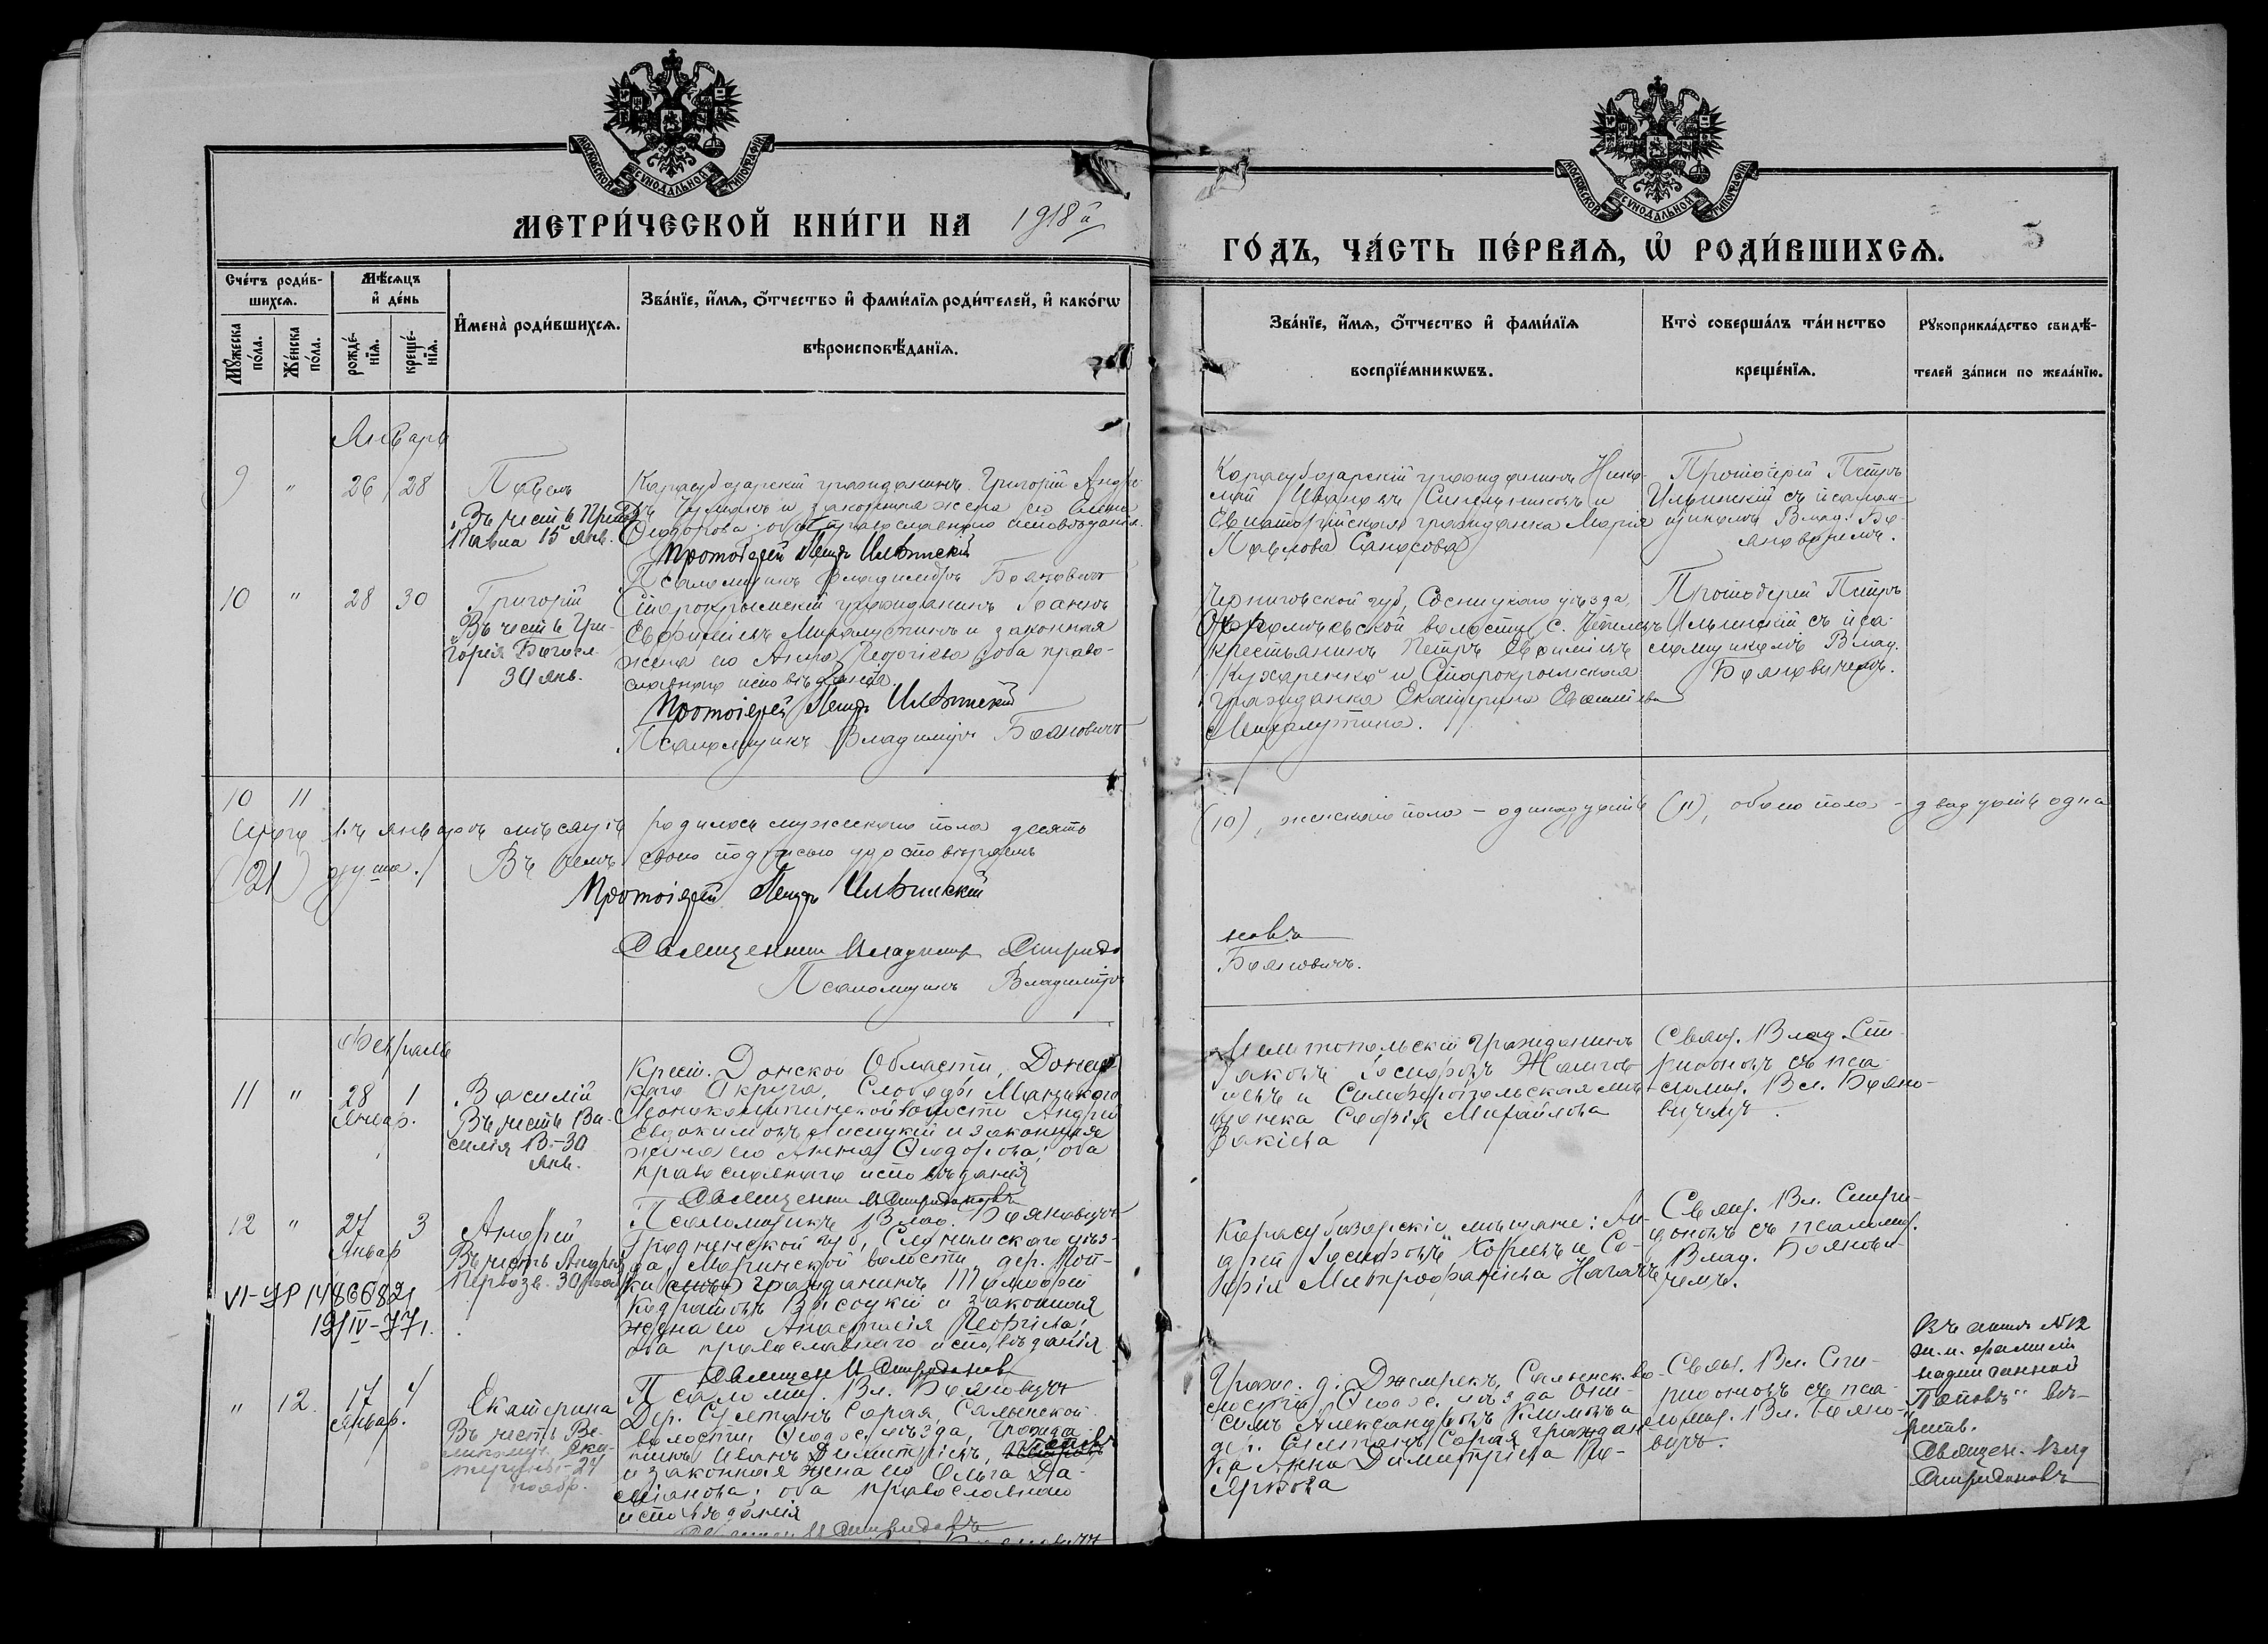 МОСКОВСКОЙ СУНОДАЛЬНОЙ ТИПОГРАФІИ
МЕТРИ́ЧЕСКОЙ КНИ́ГИ НА 1918й
Сче́тъ роди́в-
шихсѧ.
Мѣ́сѧцъ
и҆ де́нь
Мꙋ́жеска
по́ла.
Же́нска
по́ла.
рожде́-
нїѧ.
креще́-
нїѧ.
И҆мена̀ роди́вшихсѧ.
Зва́нїе, и҆́мѧ, ѻ҆́тчество и҆ фами́лїѧ роди́телей, и҆ како́гѡ
вѣроисповѣ́данїѧ.
Январь
9 " 26 28
Павелъ
Въ честь Преп.
Павла 15 янв.
Карасубазарскій гражданинъ Григорій Андре-
и законная жена его
Ѳеодорова; оба православнаго исповѣданія.
Протоіерей Петръ Ильинскій
Псаломщикъ Владиміръ Бояновичъ
10 " 28 30
Григорій
Въ честь Гри-
горія Богосл.
30 янв.
Старокрымскій гражданинъ Іоаннъ
Евфиміевъ и законная
жена его Анна Георгіева; оба право-
славнаго исповѣданія.
Протоіерей Петръ Ильинскій
Псаломщикъ Владиміръ Бояновичъ
10 11
Итого въ январѣ мѣсяцѣ родилось мужескаго пола десять
(21) душа. Въ чемъ своею подписью удостовѣряемъ
Протоіерей Петръ Ильинскій
Священникъ Владиміръ Спиридо
Псаломщикъ Владиміръ
Февраль
11 " 28 1
Январ.
Василій
Въ честь Ва-
силія В.-30
Янв.
Крест. Донской Области, Донец-
каго Округа, Слободы
волости Андрей
Евдокимовъ Лисицкій и законная
жена его Анна Ѳеодорова; оба
православнаго исповѣданія
Священни В Спиридоновъ
Псаломщикъ Влад. Бояновичъ
12 " 27 3
Январ
Андрей
Въ честь Андрея
Первозв. 30 ноя
Гродненской губ, Слонимскаго уѣз-
да, волости, дер.
гражданинъ Тимофей
Кодратовъ Высоцкій и законная
жена его Анастасія Георгіева;
оба православнаго исповѣданія
VI-УР 1486682
19/IV-77г.
Священ В Спиридонов
Псаломщ. Вл. Бояновичъ
" 12 17 4
Январ.
Екатерина
Въ честь Ве-
ликомуч. Ека-
терины-24
ноябр.
Дер. Султанъ Сарая, Сальенской
волости, Ѳеодос. уѣзда, гражда-
нинъ Иванъ Димитріевъ,
и законная жена его Ольга Да-
міанова; оба православнаго
исповѣданія
5
МОСКОВСКОЙ СУНОДАЛЬНОЙ ТИПОГРАФІИ
ГО́ДЪ, ЧА́СТЬ ПЕ́РВАѦ, Ѽ РОДИ́ВШИХСѦ.
Зва́нїе, и҆́мѧ, ѻ҆́тчество и҆ фами́лїѧ
воспрїе́мникѡвъ.
Кто̀ соверша́лъ та́инство
креще́нїѧ.
Рꙋкоприкла́дство свидѣ́-
телей за́писи по жела́нїю.
Карасубазарскій гражданинъ Нико-
лай Ивановъ Синельниковъ и
Евпаторійская гражданка Марія
Павлова
Протоіерей Петръ
Ильинскій съ псалом-
щикомъ Влад. Бо-
яновичемъ.
Черниговской губ, Сосницкаго уѣзда,
волости, с.
крестьянинъ Петръ Евфиміевъ
Кухаренко и Старокрымская
гражданка Екатерина
Протоіерей Петръ
Ильинскій съ пса-
ломщикомъ Влад.
Бояновичемъ.
(10), женскаго пола - одинадцать (11), обоего пола - двадцать одна
новъ
Бояновичъ.
Мелитопольскій гражданинъ
Іаковъ Іосифовъ
и Симферопольская мѣ-
щанка Софія Михайлова
Свящ. Влад. Спи-
ридоновъ съ пса-
ломщ. Вл. Бояно-
вичемъ.
Карасубазарскіе мѣщане: Ан-
дрей Іосифовъ Корневъ и Со-
фія Митрофаніева
Свящ. Вл. Спири-
доновъ съ псаломщ.
Влад. Боянови-
чемъ.
Гражд. д. Джамрекъ, Сальенск. во-
лости, Ѳеодос. уѣзда Они-
симъ Александровъ Климовъ и
дер. Султанъ Сарая граждан-
ка Анна Димитріева
Свящ. Вл. Спи-
ридоновъ съ пса-
ломщ. Вл. Бояно-
вичъ.
Въ актѣ №12
ж.п. фамиліи
надписанной
"Поповъ" вѣ-
рить.
Священ. Влад
Спиридоновъ